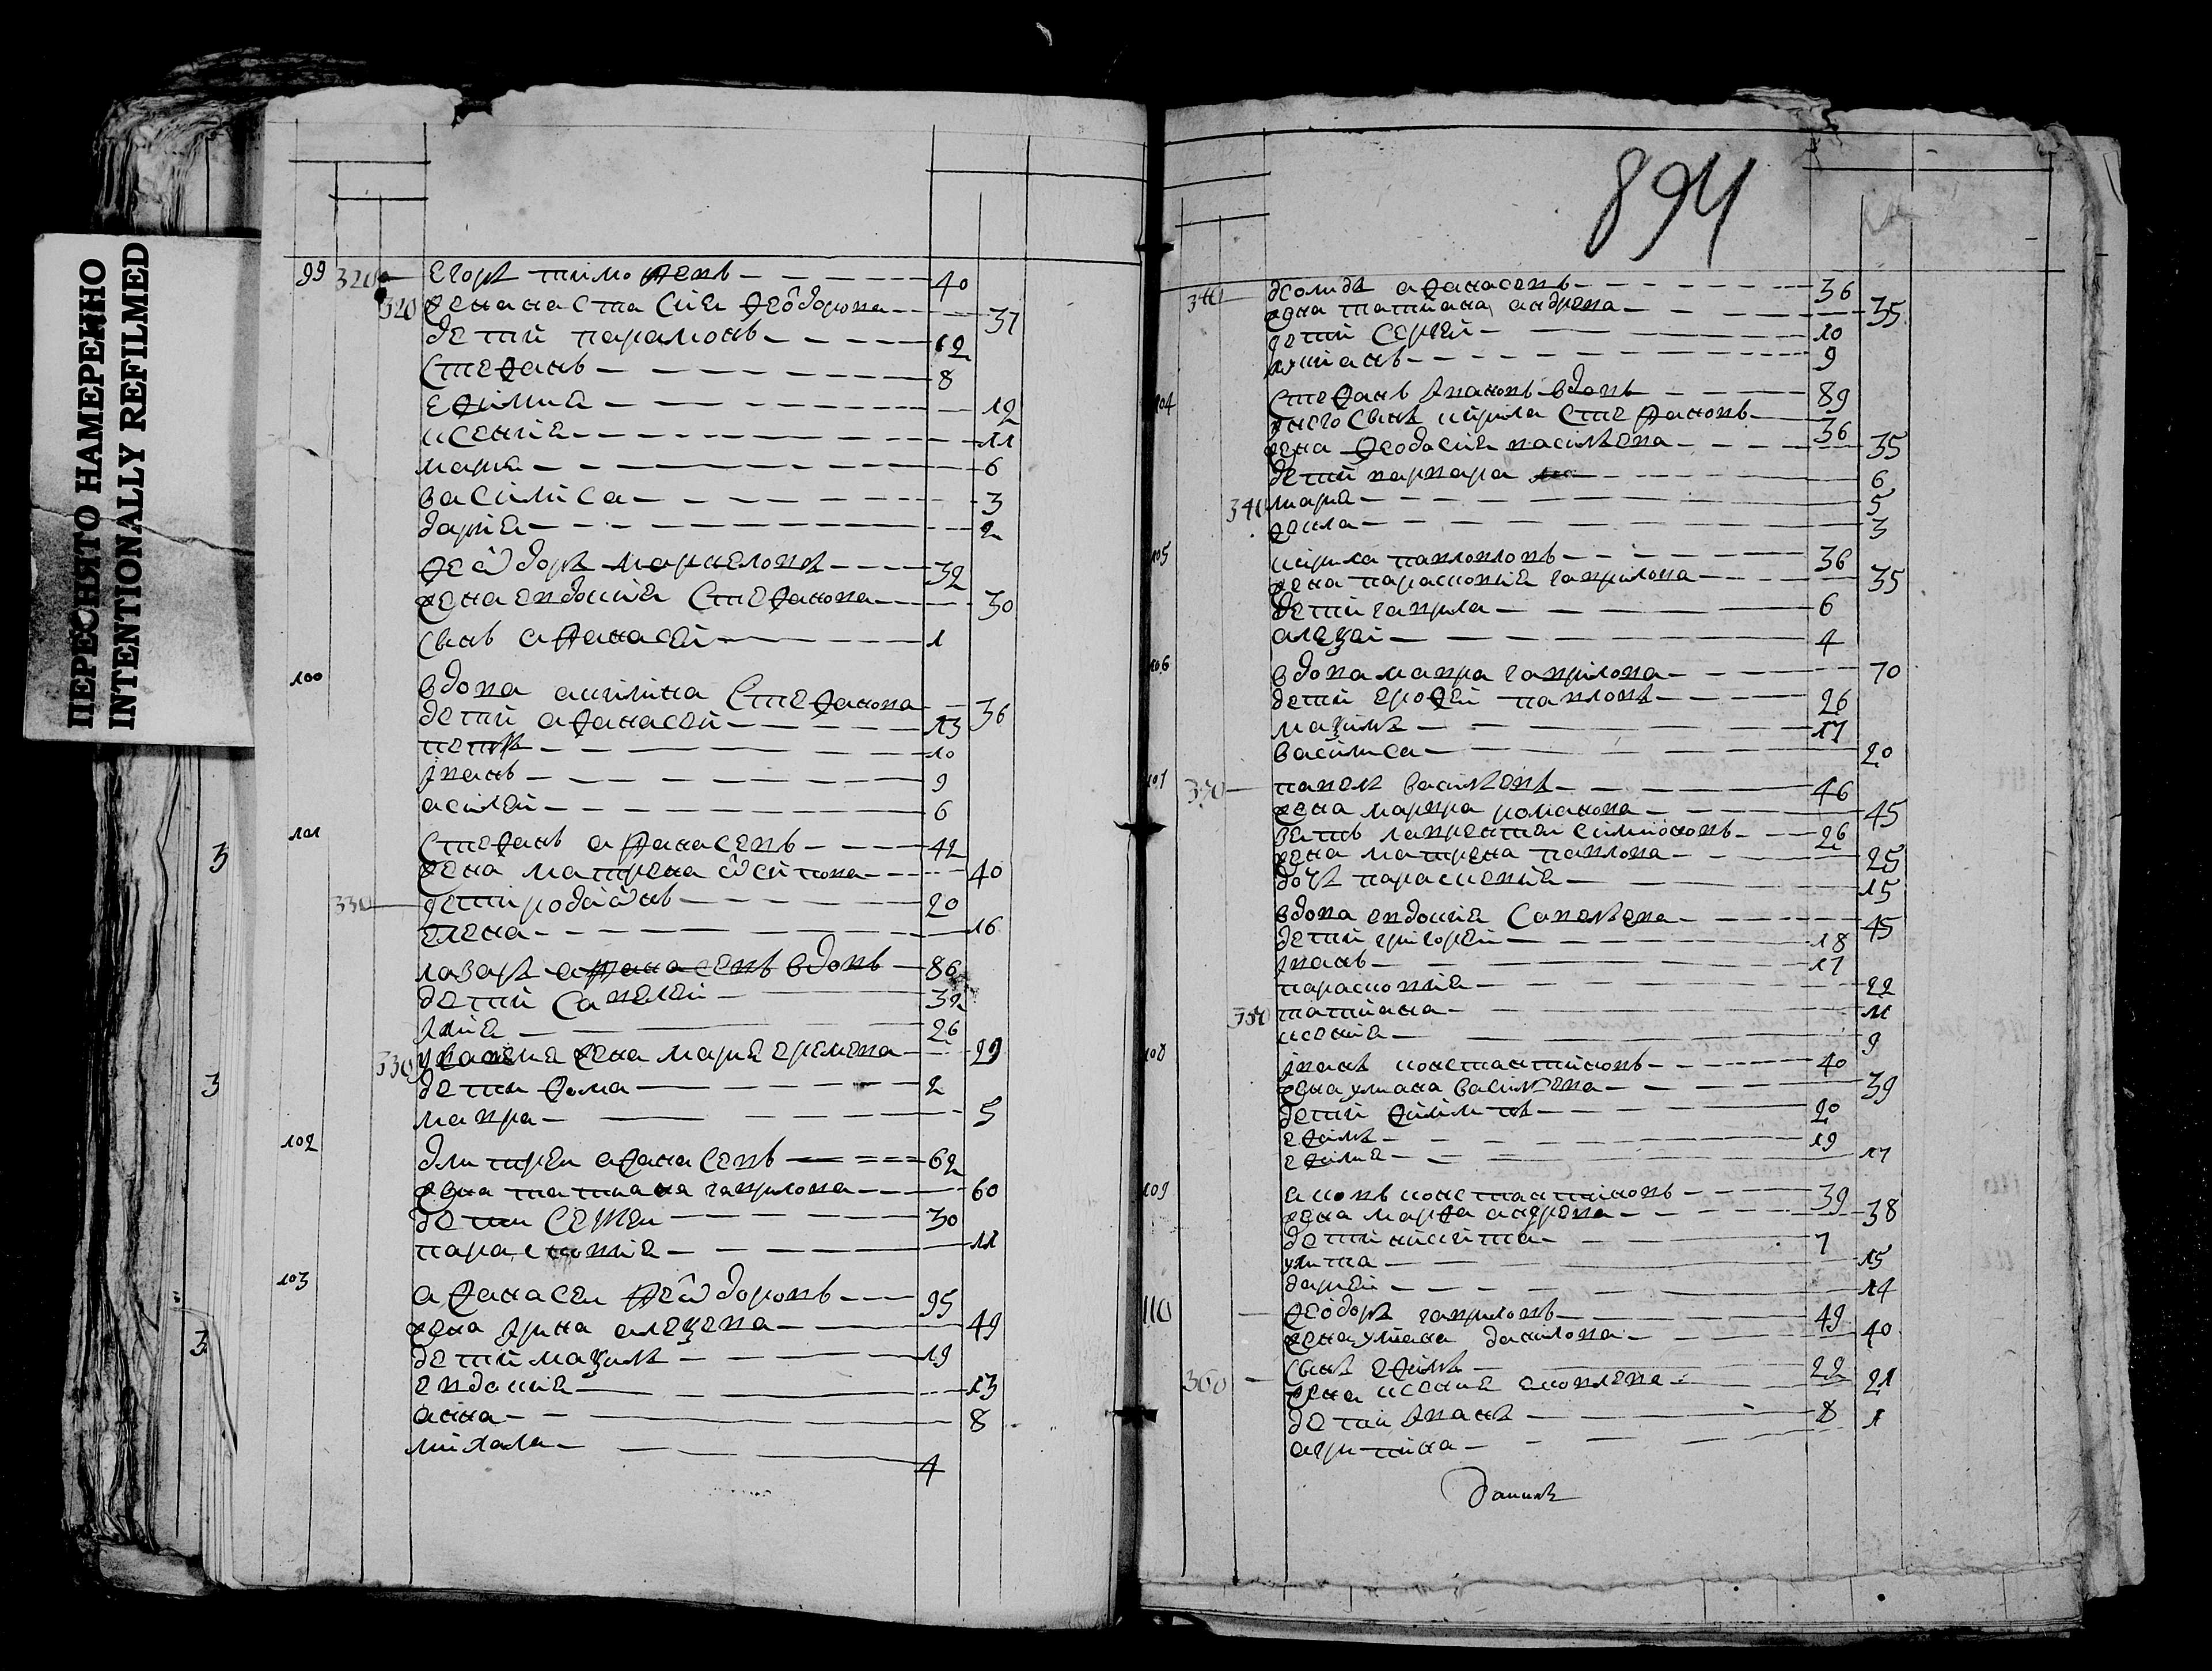 ПЕРЕСНЯТО НАМЕРЕННО
INTENTIONALLY REFILMED
99 320 Егоръ тимофевъ 40
320 жена настасия феодорова 37
дети парамонъ 12
стефанъ 8
ефимиа 12
ксения 11
мариа 6
василиса 3
дариа 2
феодоръ маркеловъ 32
жена евдокиа стефанова 30
сынъ афанасеи 1
100
вдова акилина стефанова 36
дети афанасеи 13
петръ 10
иванъ 9
асилеи 6
101
стефанъ афанасевъ 42
жена матрена осипова 40
330 дети родионъ 20
елена 16
лазаръ афанасевъ вдовъ 86
дети савелеи 32
илиа 26
330 у жена мариа еремева 29
дети фома 2
мавра 5
102
дмитреи афанасевъ 62
жена татиана гаврилова 60
дети сергеи 30
парасковиа 11
103
афанасеи феодоровъ 95
жена ирина алеѯева 49
дети маѯимъ 19
евдокиа 13
анна 8
михаила 4
3
3
3
894
340 демидъ афанасевъ 36
жена татиана андрева 35
дети сергеи 10
лукианъ 9
104 стефанъ ивановъ вдовъ 89
у него сынъ кирила стефановъ 36
жена феодосиа василева 35
дети варвара 6
340 мариа 5
фекла 3
105 кирила павловъ 36
жена парасковиа гаврилова 35
дети гаврила 6
алеѯеи 4
106
вдова мавра гаврилова 70
дети ерофеи павловъ 26
маѯимъ 17
василиса 20
107 350 павелъ василевъ 46
жена марфа романова 45
зять лаврентеи симионовъ 26
жена матрена павлова 25
дочь парасковиа 15
вдова евдокиа савелева 45
дети григореи 18
иванъ 17
парасковиа 22
350 татиана 11
ксения 9
108 иванъ константиновъ 40
жена улиана василева 39
дети филипъ 20
ефимъ 19
ефимиа 17
109 иаковъ константиновъ 39
жена марфа андрева 38
дети никита 7
улита 15
дариа 14
110 феодоръ гавриловъ 49
жена улиана данилова 40
360 сынъ ефимъ 22
жена ксениа иаковлева 21
дети иванъ 8
агрипина 1